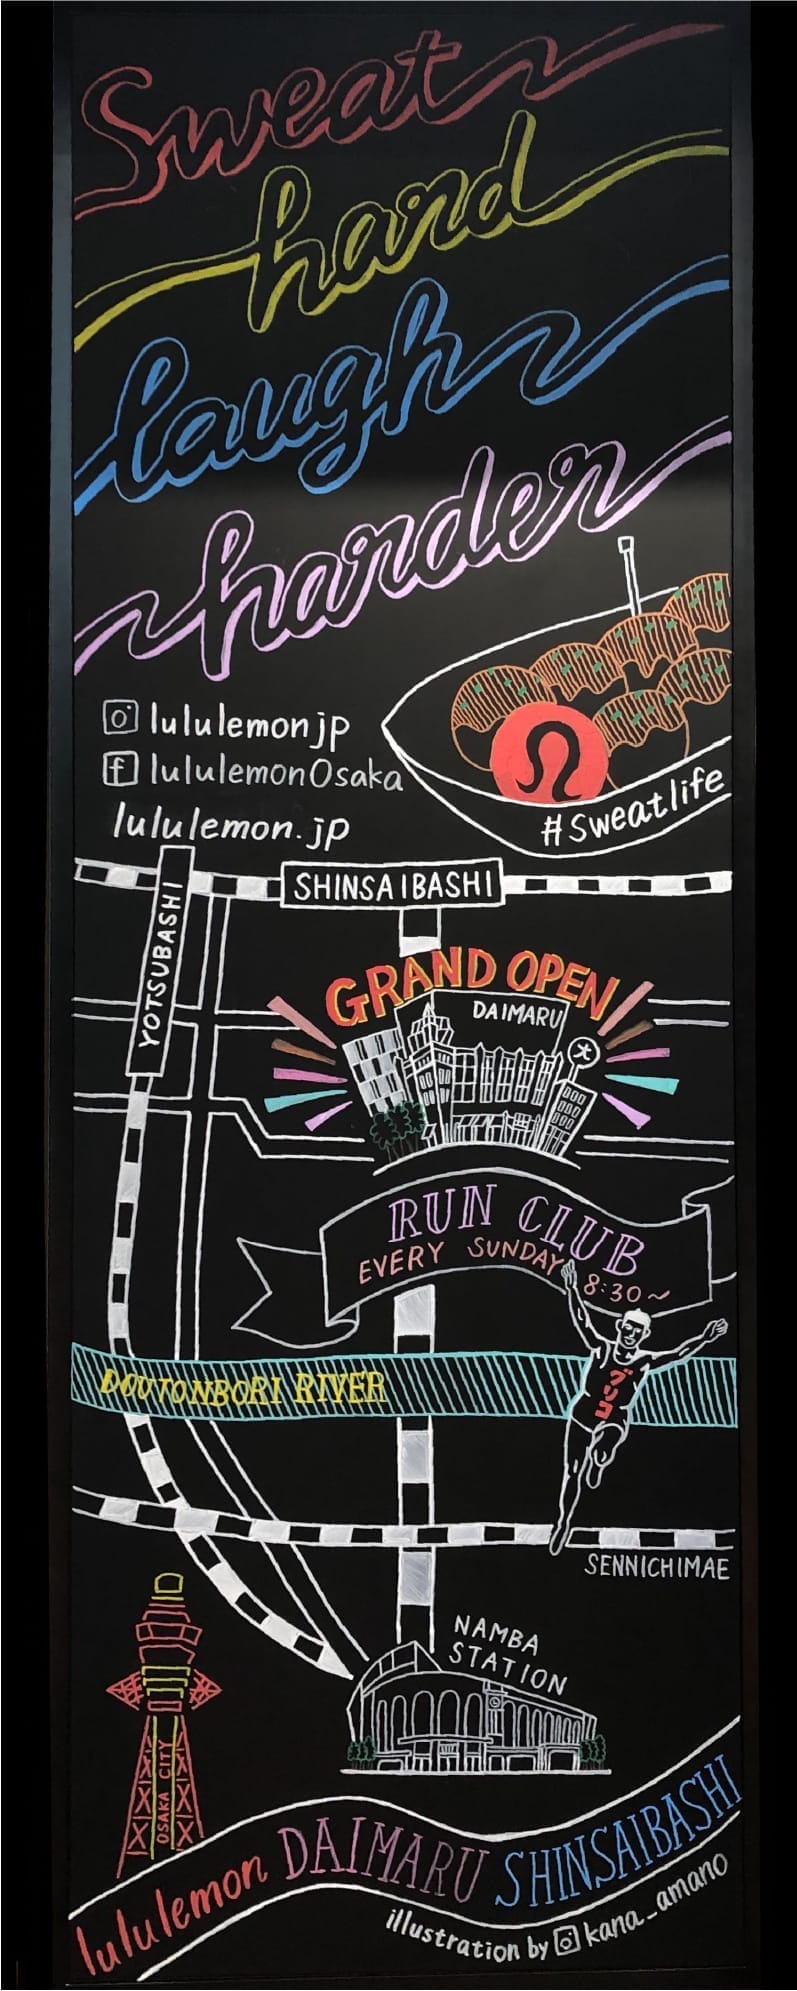 Sweat
hard
laugh
harder
lululemonjp
lululemonOsaka
lululemon.jp
#sweatlife
SHINSAIBASHI
YOTSUBASHI
GRAND OPEN
DAIMARU
大
RUN CLUB
EVERY SUNDAY 8:30~
グリコ
DOUTONBORI RIVER
SENNICHIMAE
NAMBA
STATION
OSAKA CITY
lululemon DAIMARU SHINSAIBASHI
illustration by kana_amano